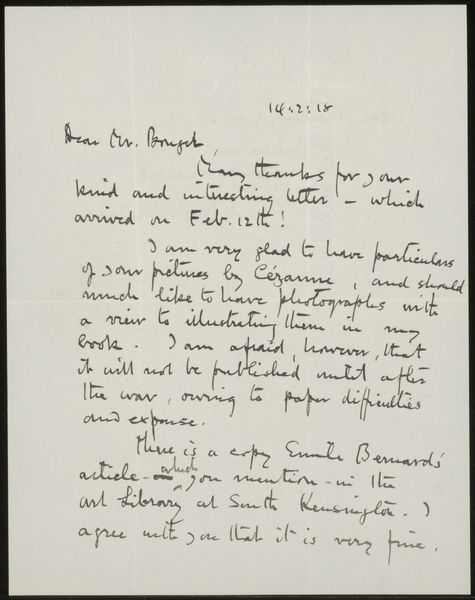 14.2.18
Dear Mr. Bonger,
Many thanks for your
kind and interesting letter – which
arrived on Feb. 12th!
I am very glad to have particulars
of your pictures by Cézanne, and should
much like to have photographs with
a view to illustrating them in my
book. I am afraid, however, that
it will not be published until after
the war, owing to paper difficulties
and expense.
There is a copy Emile Bernard's
article – which you mention – in the
art Library at South Kensington. I
agree with you that it is very fine.